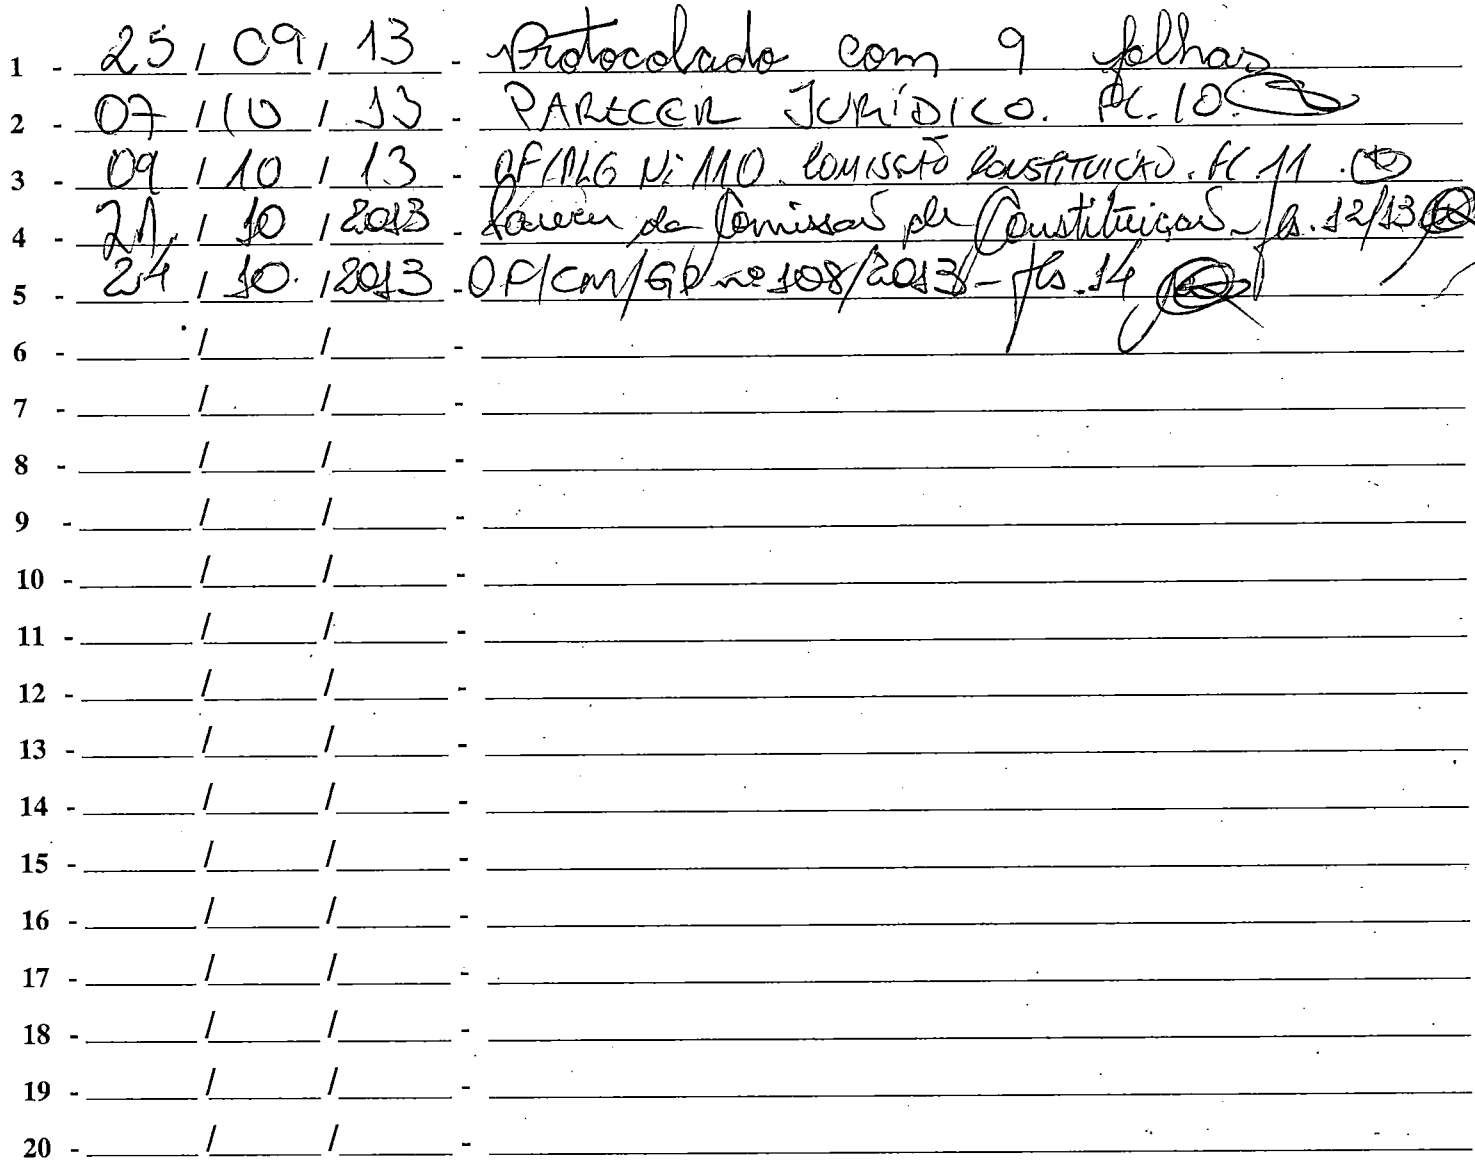 1 - 25 / 09 / 13 - Protocolado com 9 folhas
2 - 07 / 10 / 13 - PARECER JURÍDICO. FL. 10
3 - 09 / 10 / 13 - OF/PLG Nº 110. COMISSÃO CONSTITUIÇÃO. FL. 11.
4 - 21 / 10 / 2013 - Parecer da Comissão de Constituição - fls. 12/13
5 - 24 / 10. / 2013 - OF/CM/GP nº 108/2013 - fls. 14
6 - / / -
7 - / / -
8 - / / -
9 - / / -
10 - / / -
11 - / / -
12 - / / -
13 - / / -
14 - / / -
15 - / / -
16 - / / -
17 - / / -
18 - / / -
19 - / / -
20 - / / -